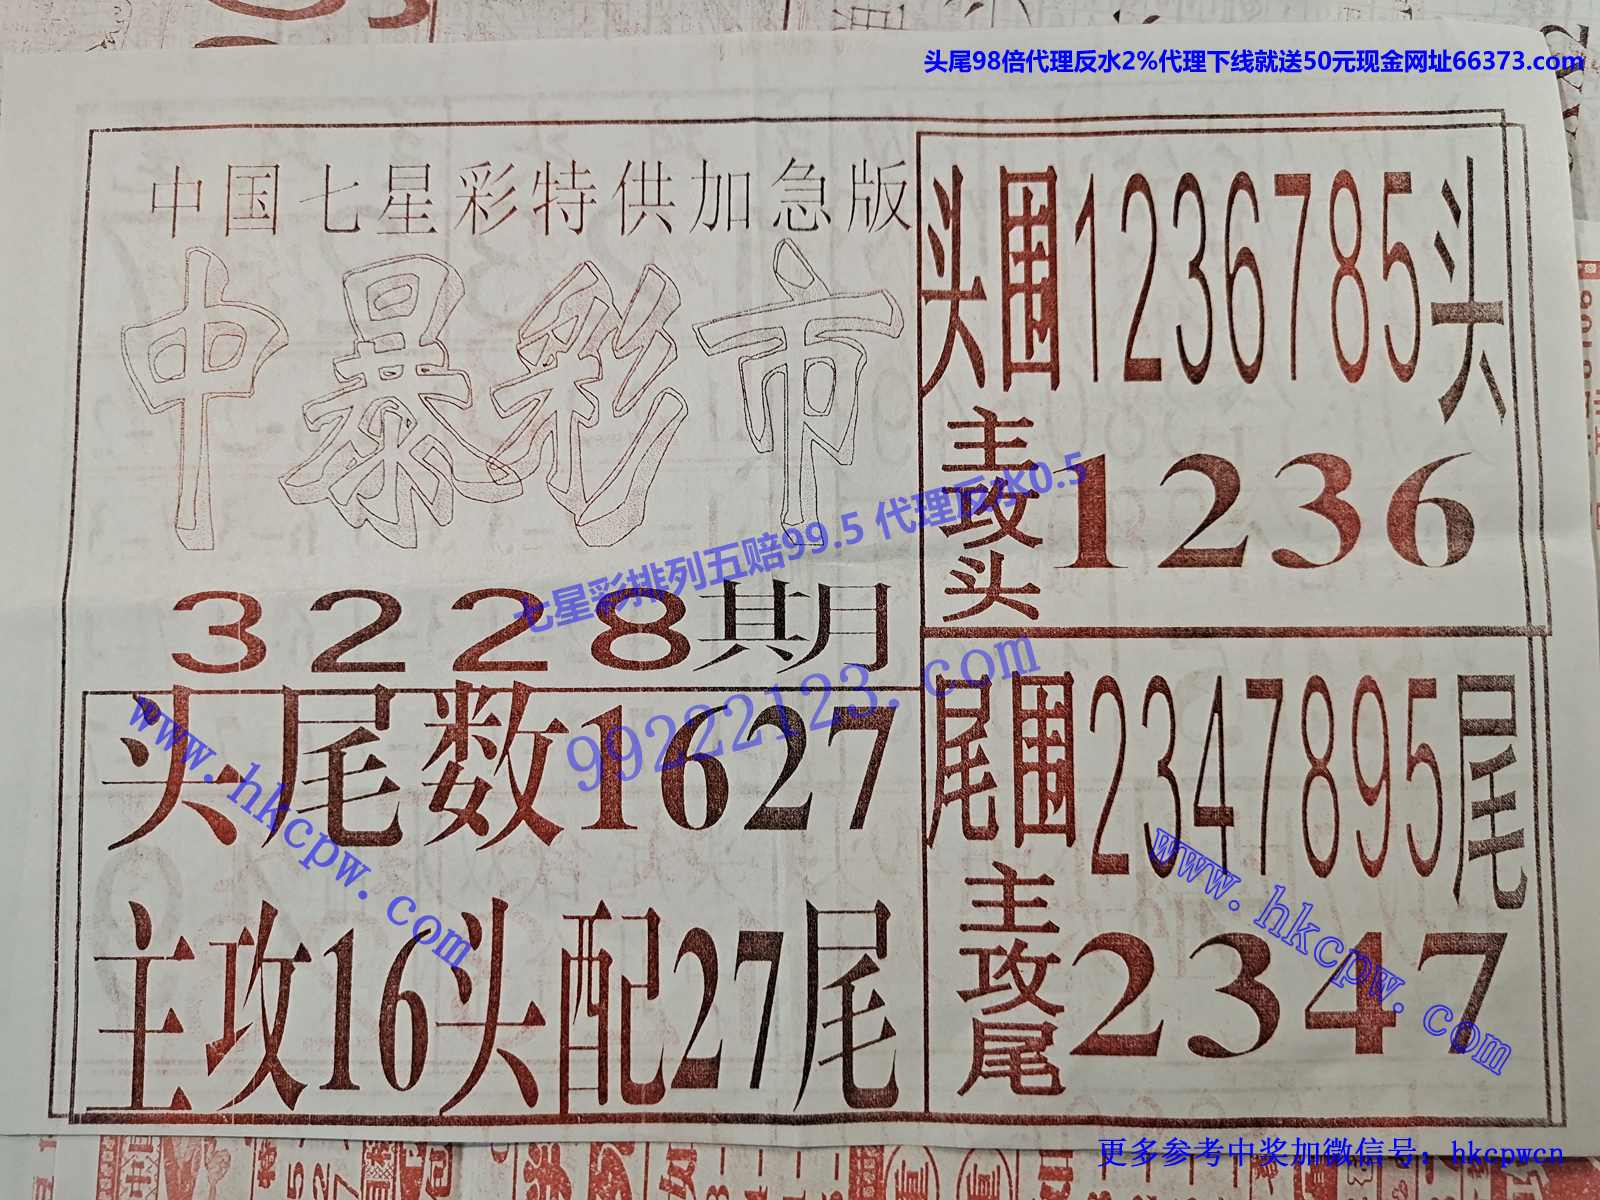 头尾98倍代理反水2%代理下线就送50元现金网址66373.com
中国七星彩特供加急版
中暴彩市
3228期
头尾数1627
主攻16头配27尾
头围1236785头
主攻头1236
尾围2347895尾
主攻尾2347
七星彩排列五赔99.5 代理反水0.5
99222123.com
www.hkcpw.com
www.hkcpw.com
更多参考中奖加微信号：hkcpwcn